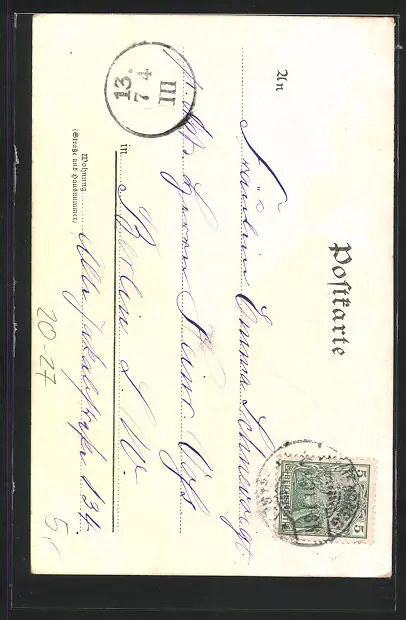 Postkarte
An
Fräulein Emma Schneevoigt
p. Adr. Herrn Hans Voß
in Berlin S.W.
Wohnung Alte Jakobstraße 134.
(Straße und Hausnummer)
13.
7 4
III
5 5
20-27
5,-